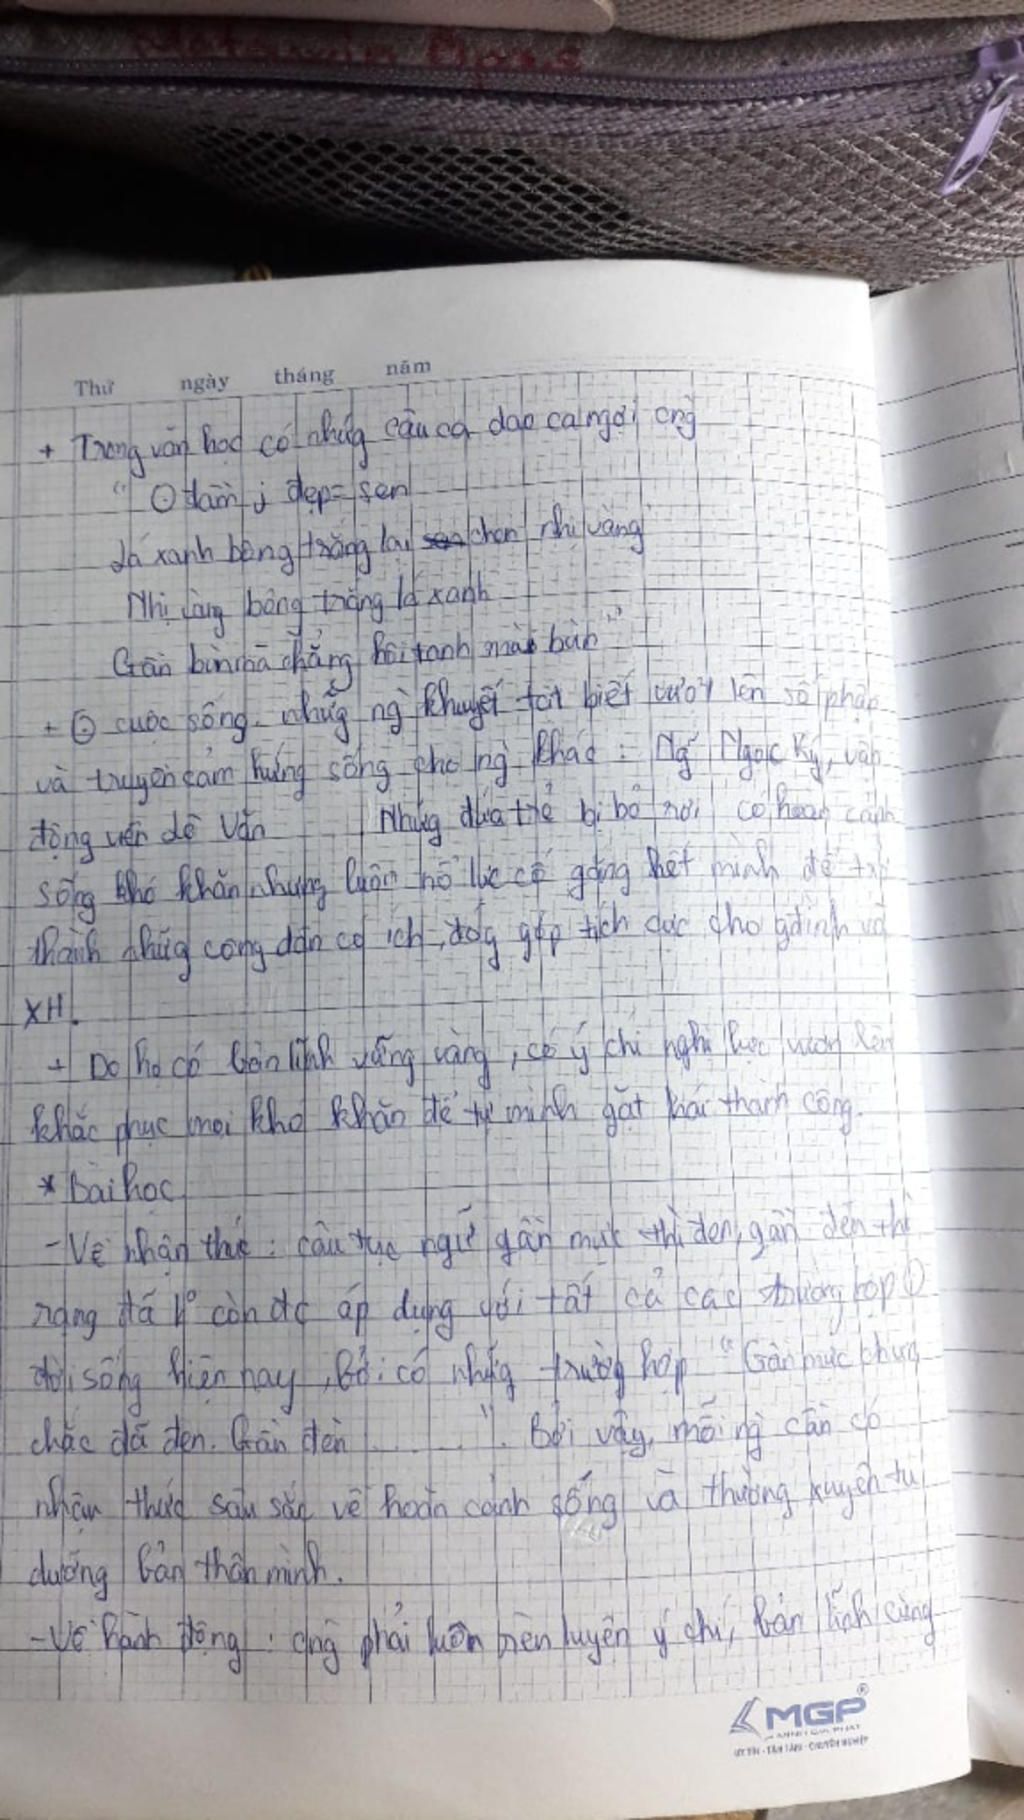 Thứ ngày tháng năm
+ Trong văn học có nhữg câu ca dao ca ngợi cng
" ⊙ đầm j đẹp = sen
Lá xanh bông trắng lại chen nhị vàng
Nhị vàng bông trắng lá xanh
Gần bùn mà chẳng hôi tanh mùi bùn"
+ ⊙ cuộc sống nhữg ng khuyết tật biết vượt lên số phận
và truyền cảm hứng sống cho ng khác: Ng~ Ngọc Ký, vận
động viên Lê Văn ...... Những đứa trẻ bị bỏ rơi có hoàn cảnh
sống khó khăn nhưng luôn nỗ lực cố gắng hết mình để trở
thành nhữg công dân có ích, đóg góp tích cực cho gđình và
XH.
+ Do họ có bản lĩnh vững vàng, có ý chí nghị lực vươn lên
khắc phục mọi khó khăn để tự mình gặt hái thành công.
* Bài học
- Về nhận thức: câu tục ngữ gần mực thì đen, gần đèn thì
rạng đã ko còn đc áp dụng với tất cả các trường hợp ⊙
đời sống hiện nay, bởi có nhữg trườg hợp "Gần mực chưa
chắc đã đen. Gần đèn ........". Bởi vậy, mỗi ng cần có
nhận thức sâu sắc về hoàn cảnh sống và thường xuyên tu
dưỡng bản thân mình.
- Về hành động: cng phải luôn rèn luyện ý chí, bản lĩnh cứng
MGP
MINH GIA PHÁT
UY TÍN - TẬN TÂM - CHUYÊN NGHIỆP